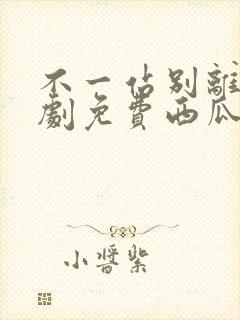 不一估别離
劇免費西瓜
小醬紫